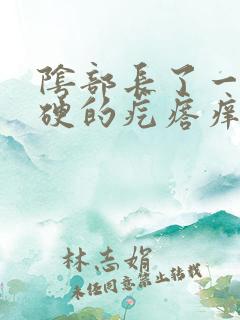 陰部長了一
硬的疙瘩癢
林志娟
未經同意禁止轉載